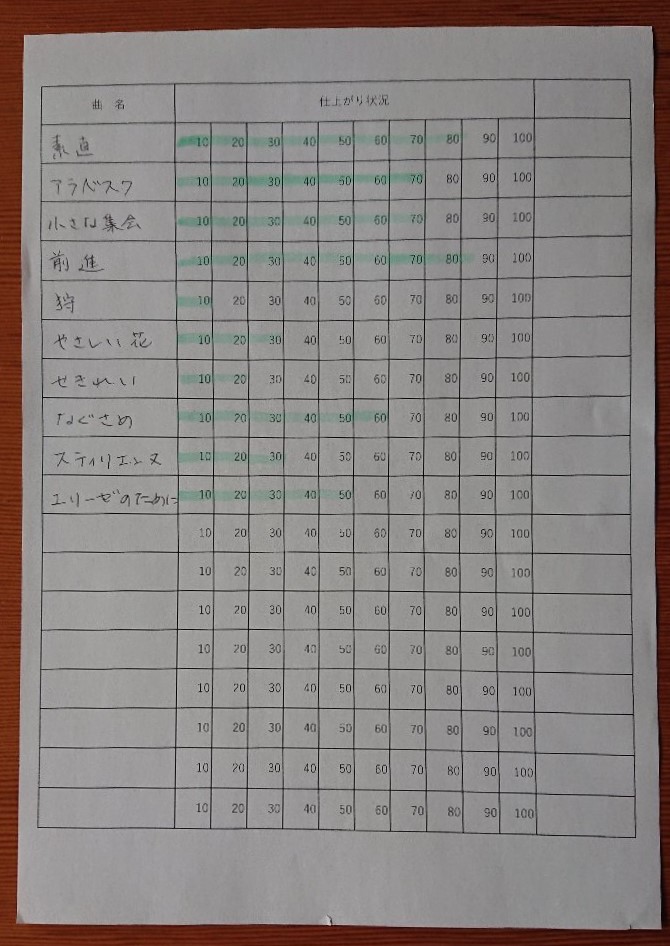 曲 名 仕上がり状況
素直 10 20 30 40 50 60 70 80 90 100
アラベスク 10 20 30 40 50 60 70 80 90 100
小さな集会 10 20 30 40 50 60 70 80 90 100
前進 10 20 30 40 50 60 70 80 90 100
狩 10 20 30 40 50 60 70 80 90 100
やさしい花 10 20 30 40 50 60 70 80 90 100
せきれい 10 20 30 40 50 60 70 80 90 100
なぐさめ 10 20 30 40 50 60 70 80 90 100
スティリエンヌ 10 20 30 40 50 60 70 80 90 100
エリーゼのために 10 20 30 40 50 60 70 80 90 100
10 20 30 40 50 60 70 80 90 100
10 20 30 40 50 60 70 80 90 100
10 20 30 40 50 60 70 80 90 100
10 20 30 40 50 60 70 80 90 100
10 20 30 40 50 60 70 80 90 100
10 20 30 40 50 60 70 80 90 100
10 20 30 40 50 60 70 80 90 100
10 20 30 40 50 60 70 80 90 100